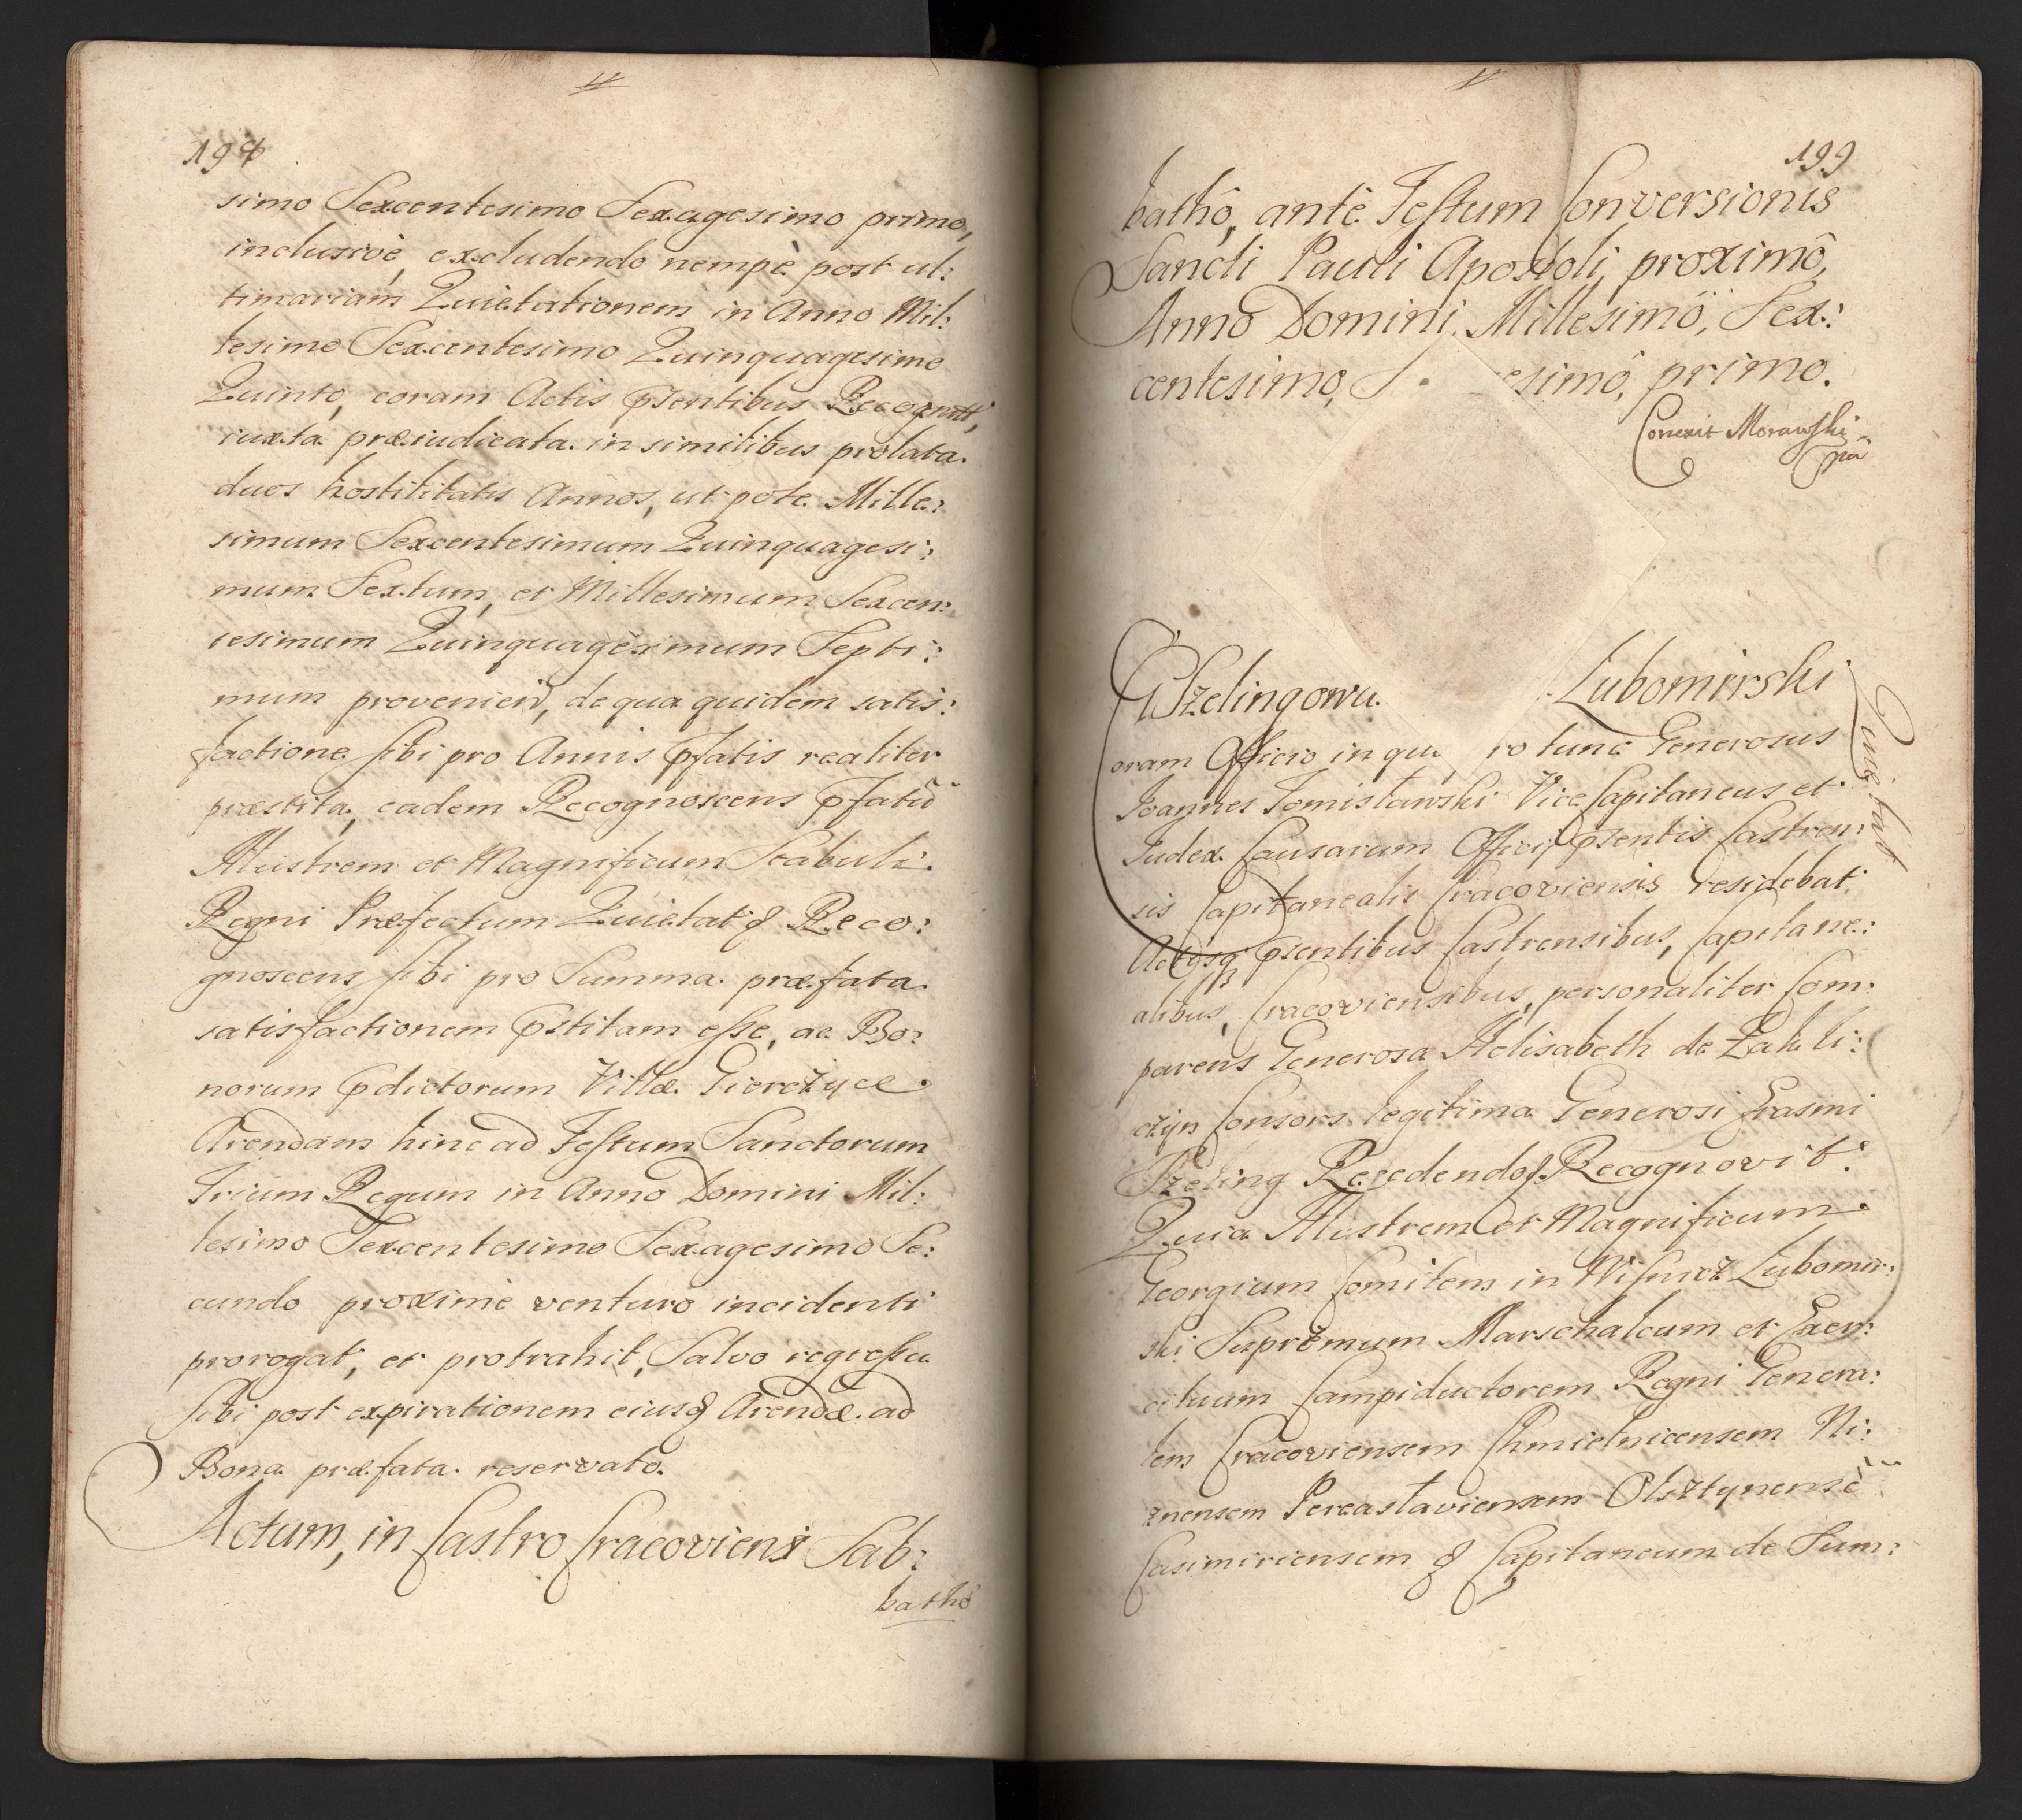 198
simo Sexcentesimo Sexagesimo primo,
inclusivè, excludendo nempè post ul:
timariam Quietationem in Anno Mil:
lesimo Sexcentesimo Quinquagesimo
Quinto, coram Actis pntibus Recognit,
iuxta præiudicata in similibus prolata
duos hostilitatis Annos, ut pote Mille:
simum Sexcentesimum Quinquagesi:
mum Sextum, et Millesimum Sexcen:
tesimum Quinquagesimum Septi:
mum provenien, de qua quidem satis:
factione sibi pro Annis pfatis realiter
præstita, eadem Recognoscens pfatū
Illustrem et Magnificum Stabuli
Regni Præfectum Quietat & Reco:
gnoscens sibi pro Summa præfata
satisfactionem pstitam esse, ac Bo:
norum pdictorum Villæ Gierczyce
Arendam hinc ad Festum Sanctorum
Trium Regum in Anno Domini Mil:
lesimo Sexcentesimo Sexagesimo Se:
cundo proximè venturo incidenti
prorogat, et protrahit, Salvo regressu
sibi post expirationem eiusq Arendæ ad
Bona præfata reservato.
Actum, in Castro Cracoviensi Sab:
bathô
199
bathô, antè Festum Conversionis
Sancti Pauli Apostoli, proximô,
Annô Domini Millesimô, Sex:
centesimo, S esimô, primo.
Correxit Morawski
mp
Szelingowa Lubomirski
Quietat
oram Officio in qu ro tunc Generosus
Joannes Tomisławski Vice Capitaneus et
Judex Causarum Officij pntis Castren:
sis Capitanealis Cracoviensis residebat
Actisq pntibus Castrensibus, Capitane:
alibus, Cracoviensibus, personaliter Com:
parens Generosa Helisabeth de Zakli:
czyn Consors legitima Generosi Erasmi
Szeling Recedendo & Recognovit
Quia Illustrem et Magnificum
Georgium Comitem in Wisnicz Lubomir:
ski Supremum Marschalcum et Exer:
cituum Campiductorem Regni Genera:
lem Cracoviensem Chmielnicensem Ni:
znensem Pereasłaviensem Olsztynensē
Casimiriensem & Capitaneum de Sum: